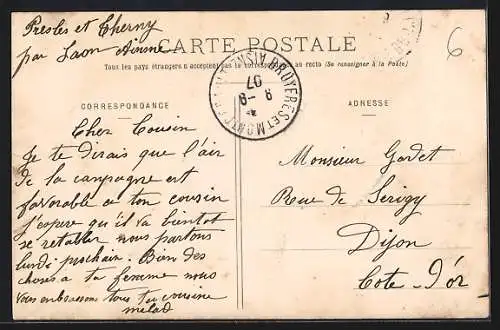 Presles et Cherny
par Laon Aisne
CARTE POSTALE
Tous les pays étrangers n'acceptent pas la correspondance au recto (Se renseigner à la Poste)
BRUYERES ET MONT AISNE
9 -8
07
6
CORRESPONDANCE
ADRESSE
Cher Cousin
Je te dirais que l'air
de la campagne est
favorable a ton cousin
j'espere qu'il va bientot
se retablir nous partons
lundi prochain. Bien des
choses a ta femme nous
vous embrassons tous ta cousine
Monsieur Godet
Rue de Serigy
Dijon
Cote-d'or